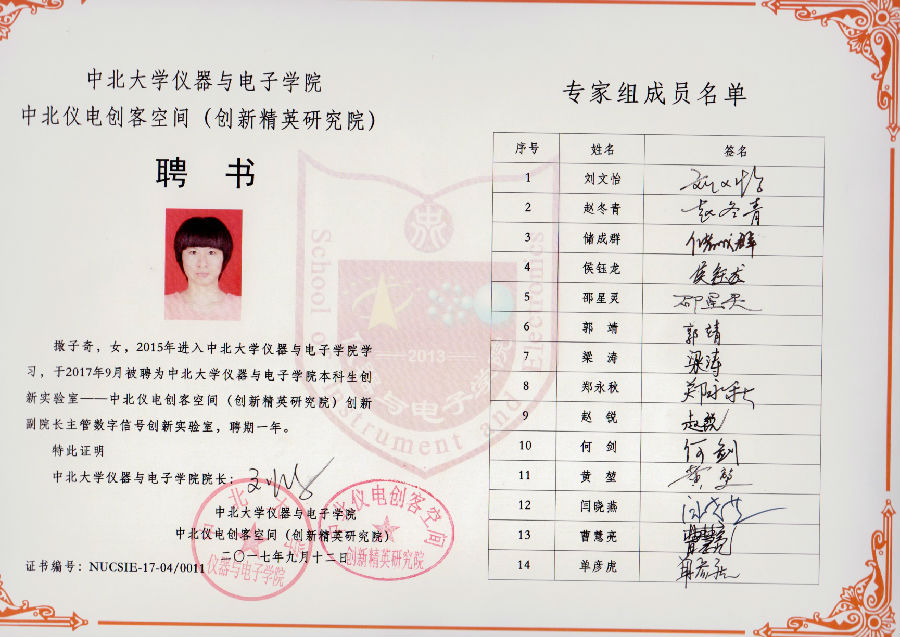 中北大学仪器与电子学院
中北仪电创客空间（创新精英研究院）
聘 书
撖子奇，女，2015年进入中北大学仪器与电子学院学
习，于2017年9月被聘为中北大学仪器与电子学院本科生创
新实验室——中北仪电创客空间（创新精英研究院）创新
副院长主管数字信号创新实验室，聘期一年。
特此证明
中北大学仪器与电子学院院长：
中北大学仪器与电子学院
中北仪电创客空间（创新精英研究院）
二〇一七年九月十二日
证书编号：NUCSIE-17-04/0011
仪器与电子学院
中北仪电创客空间
创新精英研究院
School of Instrument and Electronics
2013
专家组成员名单
序号 姓名 签名
1 刘文怡 刘文怡
2 赵冬青 赵冬青
3 储成群 储成群
4 侯钰龙 侯钰龙
5 邵星灵 邵星灵
6 郭 靖 郭靖
7 梁 涛 梁涛
8 郑永秋 郑永秋
9 赵 锐 赵锐
10 何 剑 何剑
11 黄 堃 黄堃
12 闫晓燕
13 曹慧亮 曹慧亮
14 单彦虎 单彦虎